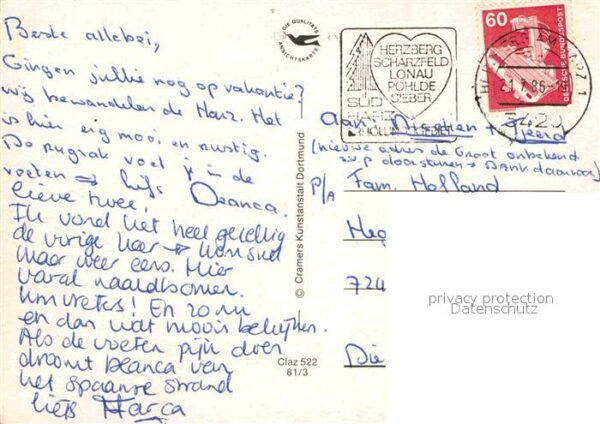 Beste allebei,
Gingen jullie nog op vakantie?
wij bewandelen de Harz. Het
is hier erg mooi en rustig.
De rugzak voel je in de
voeten → liefs Bianca.
Lieve twee,
Ik vond het heel gezellig
de vorige keer → kom snel
maar weer eens. Hier
vooral naaldbomen.
km vreters! En zo nu
en dan wat moois bekijken.
Als de voeten pijn doen
droomt bianca van
het spaanse strand
liefs
DIE QUALITÄTS
ANSICHTSKARTE
© Cramers Kunstanstalt Dortmund
Claz 522
81/3
HERZBERG
SCHARZFELD
LONAU
PÖHLDE
SIEBER
SÜD
HARZ
60
DEUTSCHE BUNDESPOST
Aan
(nieuwe adres de Groot onbekend
s.v.p doorsturen → Dank daarvoor)
P/A Fam. Holland
724
Die
privacy protection
Datenschutz